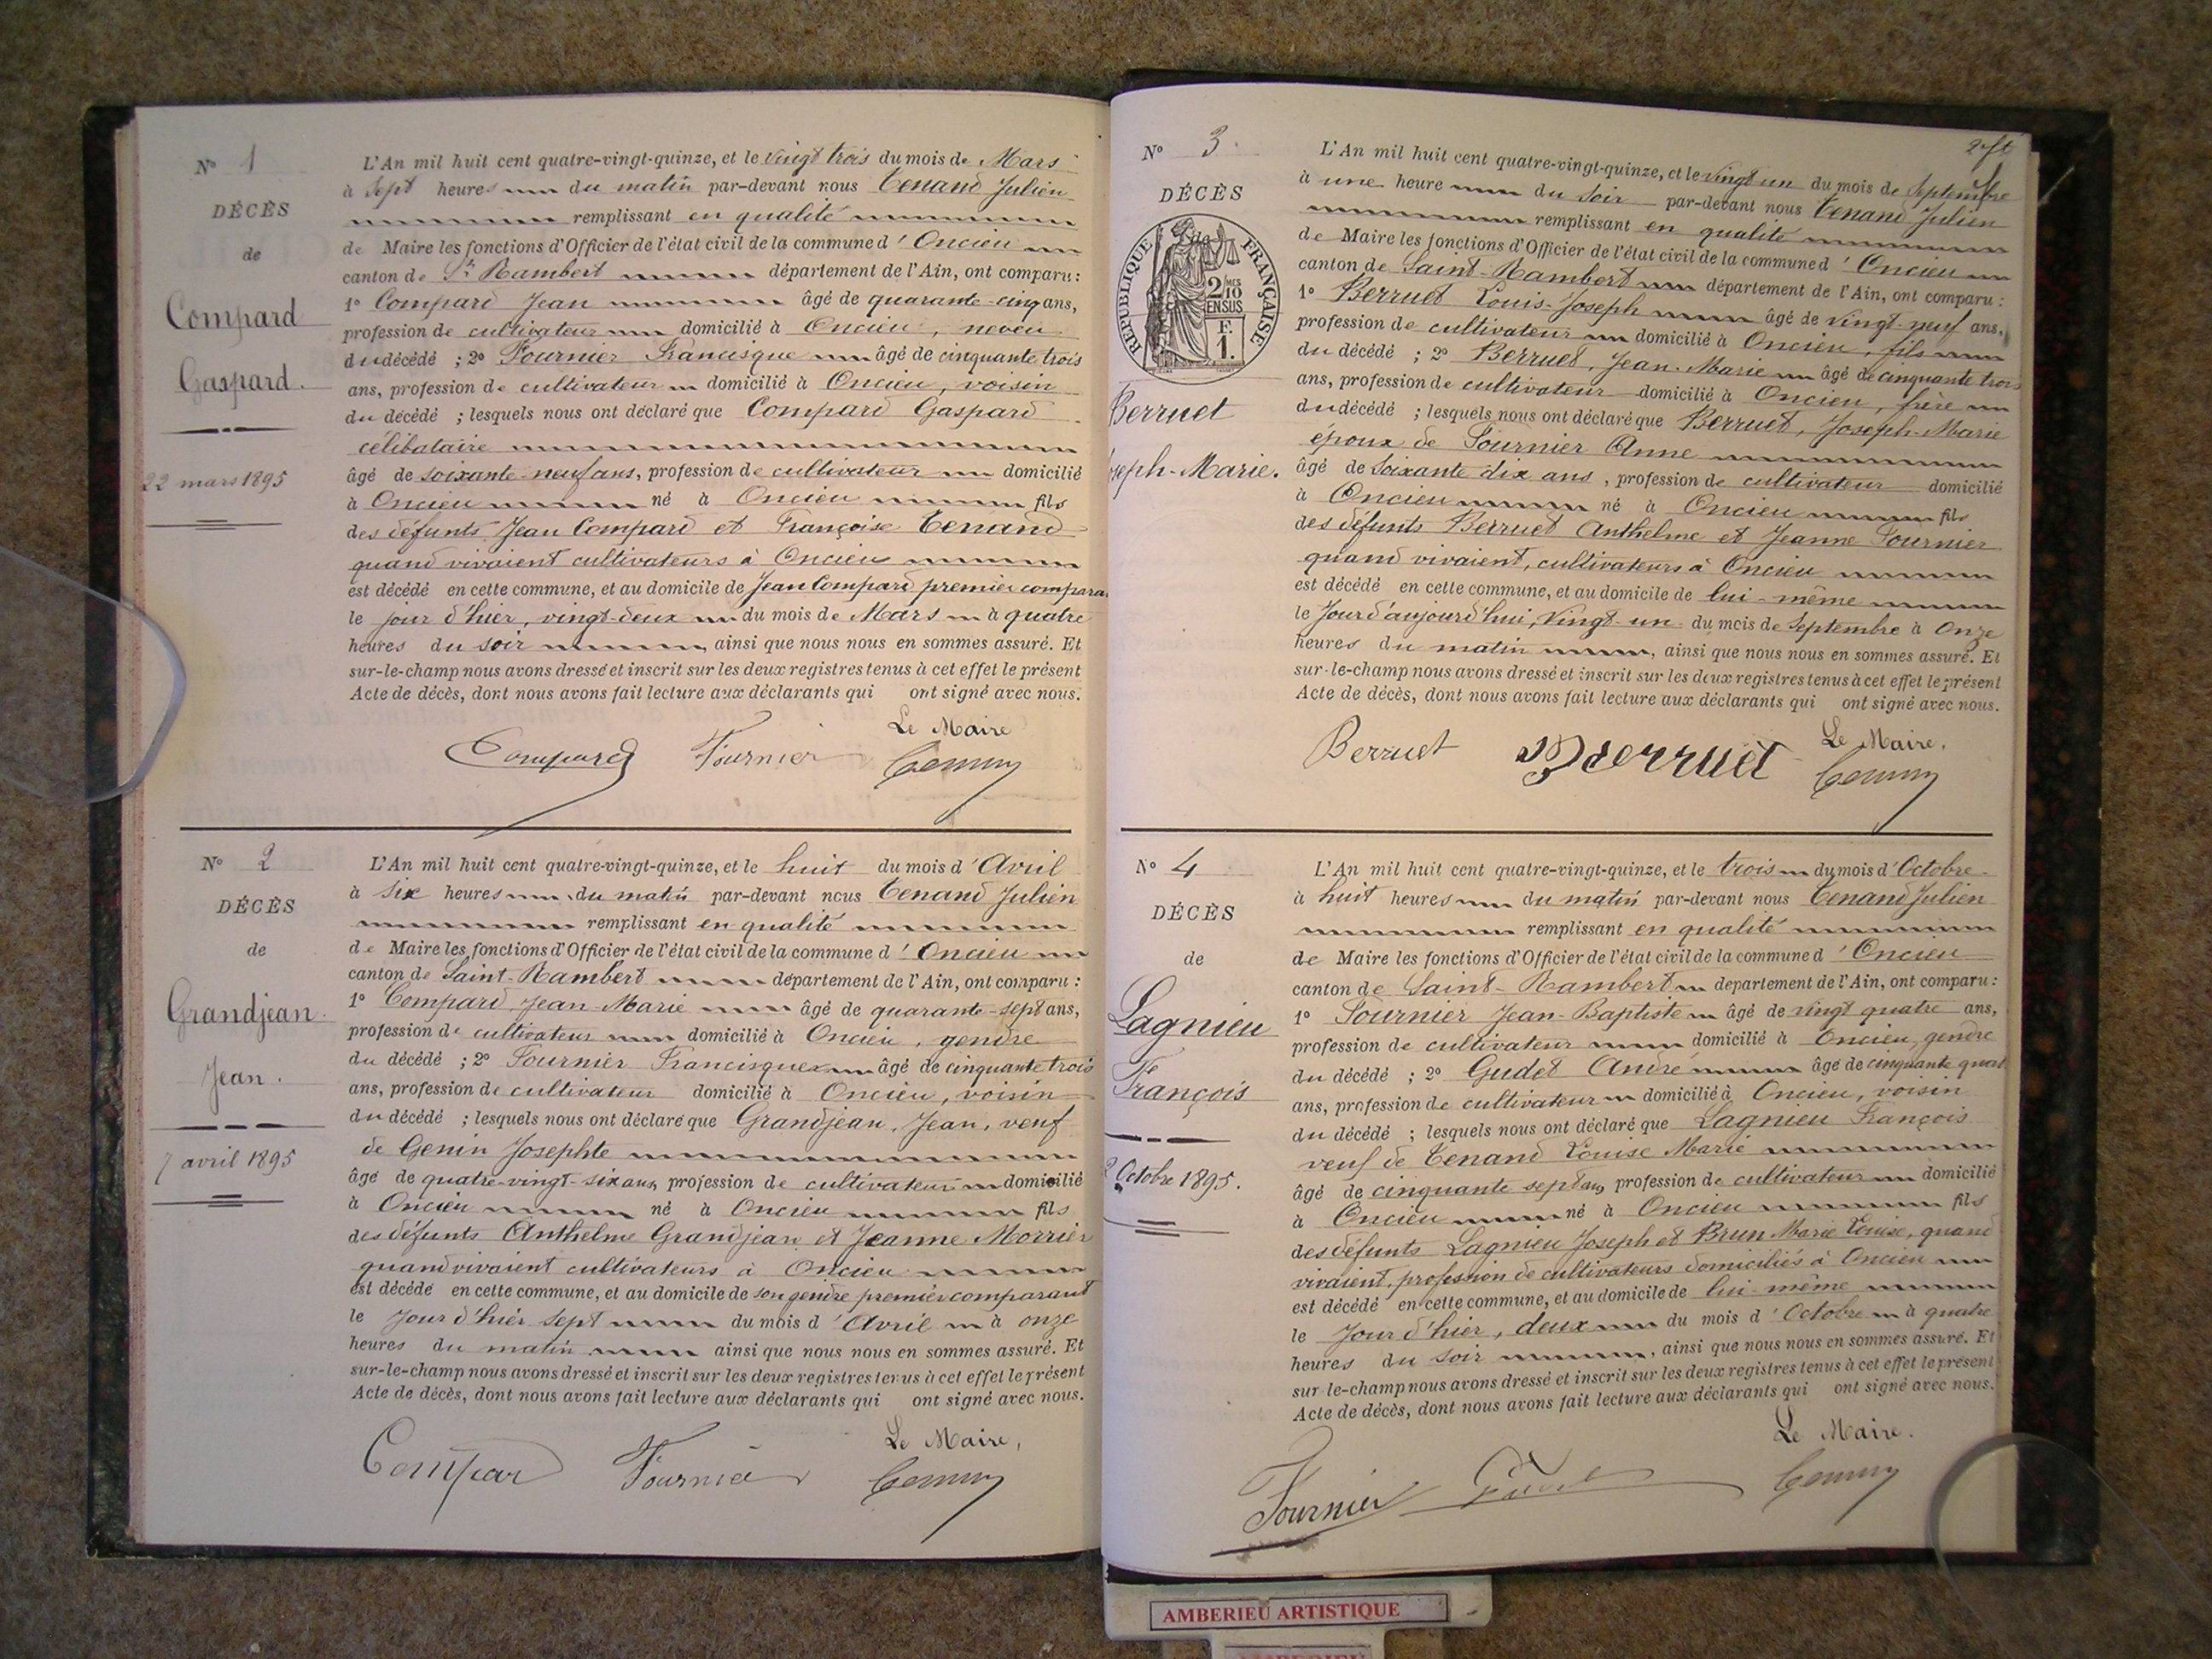 N° 1
DÉCÈS
de
Compard
Gaspard.
22 mars 1895
L'An mil huit cent quatre-vingt-quinze, et le vingt trois du mois de Mars
à sept heures du matin par-devant nous Tenand Julien
remplissant en qualité
de Maire les fonctions d'Officier de l'état civil de la commune d'Oncieu
canton de St Rambert département de l'Ain, ont comparu:
1° Compard Jean âgé de quarante-cinq ans,
profession de cultivateur domicilié à Oncieu, neveu
du décédé ; 2° Fournier Francisque âgé de cinquante trois
ans, profession de cultivateur domicilié à Oncieu, voisin
du décédé ; lesquels nous ont déclaré que Compard Gaspard
célibataire
âgé de soixante-neuf ans, profession de cultivateur domicilié
à Oncieu né à Oncieu fils
des défunts Jean Compard et Françoise Tenand
quand vivaient cultivateurs à Oncieu
est décédé en cette commune, et au domicile de Jean Compard premier compara
le jour d'hier, vingt-deux du mois de Mars à quatre
heures du soir, ainsi que nous nous en sommes assuré. Et
sur-le-champ nous avons dressé et inscrit sur les deux registres tenus à cet effet le présent
Acte de décès, dont nous avons fait lecture aux déclarants qui ont signé avec nous.
Le Maire
Compard Fournier
N° 2
DÉCÈS
de
Grandjean.
Jean.
7 avril 1895
L'An mil huit cent quatre-vingt-quinze, et le huit du mois d'Avril
à six heures du matin par-devant nous Tenand Julien
remplissant en qualité
de Maire les fonctions d'Officier de l'état civil de la commune d'Oncieu
canton de Saint-Rambert département de l'Ain, ont comparu:
1° Compard Jean-Marie âgé de quarante-sept ans,
profession de cultivateur domicilié à Oncieu, gendre
du décédé ; 2° Fournier Francisque âgé de cinquante trois
ans, profession de cultivateur domicilié à Oncieu, voisin
du décédé ; lesquels nous ont déclaré que Grandjean, Jean, veuf
de Genin Josephte
âgé de quatre-vingt-six ans, profession de cultivateur domicilié
à Oncieu né à Oncieu fils
des défunts Anthelme Grandjean et Jeanne Morrier
quand vivaient cultivateurs à Oncieu
est décédé en cette commune, et au domicile de son gendre premier comparant
le Jour d'hier sept du mois d'Avril à onze
heures du matin ainsi que nous nous en sommes assuré. Et
sur-le-champ nous avons dressé et inscrit sur les deux registres tenus à cet effet le présent
Acte de décès, dont nous avons fait lecture aux déclarants qui ont signé avec nous.
Le Maire,
Compar Fournier
N° 3.
DÉCÈS
RÉPUBLIQUE FRANÇAISE
2/10
MES
EN SUS
F.
1.
Berruet
seph-Marie.
L'An mil huit cent quatre-vingt-quinze, et le vingt un du mois de Septembre
à une heure du soir par-devant nous Tenand Julien
remplissant en qualité
de Maire les fonctions d'Officier de l'état civil de la commune d'Oncieu
canton de Saint-Rambert département de l'Ain, ont comparu:
1° Berruet Louis-Joseph âgé de vingt-neuf ans,
profession de cultivateur domicilié à Oncieu, fils
du décédé ; 2° Berruet, Jean-Marie âgé de cinquante trois
ans, profession de cultivateur domicilié à Oncieu, frère
du décédé ; lesquels nous ont déclaré que Berruet, Joseph-Marie
époux de Fournier Anne
âgé de soixante dix ans, profession de cultivateur domicilié
à Oncieu né à Oncieu fils
des défunts Berruet Anthelme et Jeanne Fournier
quand vivaient, cultivateurs à Oncieu
est décédé en cette commune, et au domicile de lui-même
le Jour d'aujourd'hui, Vingt-un du mois de Septembre à Onze
heures du matin, ainsi que nous nous en sommes assuré. Et
sur-le-champ nous avons dressé et inscrit sur les deux registres tenus à cet effet le présent
Acte de décès, dont nous avons fait lecture aux déclarants qui ont signé avec nous.
Le Maire,
Berruet Berruet
N° 4
DÉCÈS
de
Lagnieu
François
2 Octobre 1895.
L'An mil huit cent quatre-vingt-quinze, et le trois du mois d'Octobre
à huit heures du matin par-devant nous Tenand Julien
remplissant en qualité
de Maire les fonctions d'Officier de l'état civil de la commune d'Oncieu
canton de Saint-Rambert département de l'Ain, ont comparu:
1° Fournier Jean-Baptiste âgé de vingt quatre ans,
profession de cultivateur domicilié à Oncieu, gendre
du décédé ; 2° Gudet André âgé de cinquante quat
ans, profession de cultivateur domicilié à Oncieu, voisin
du décédé ; lesquels nous ont déclaré que Lagnieu François
veuf de Tenand Louise Marie
âgé de cinquante sept ans, profession de cultivateur domicilié
à Oncieu né à Oncieu fils
des défunts Lagnieu Joseph et Brun Marie Louise, quand
vivaient, profession de cultivateurs domiciliés à Oncieu
est décédé en cette commune, et au domicile de lui-même
le Jour d'hier, deux du mois d'Octobre à quatre
heures du soir, ainsi que nous nous en sommes assuré. Et
sur-le-champ nous avons dressé et inscrit sur les deux registres tenus à cet effet le présent
Acte de décès, dont nous avons fait lecture aux déclarants qui ont signé avec nous.
Le Maire.
Fournier
AMBERIEU ARTISTIQUE